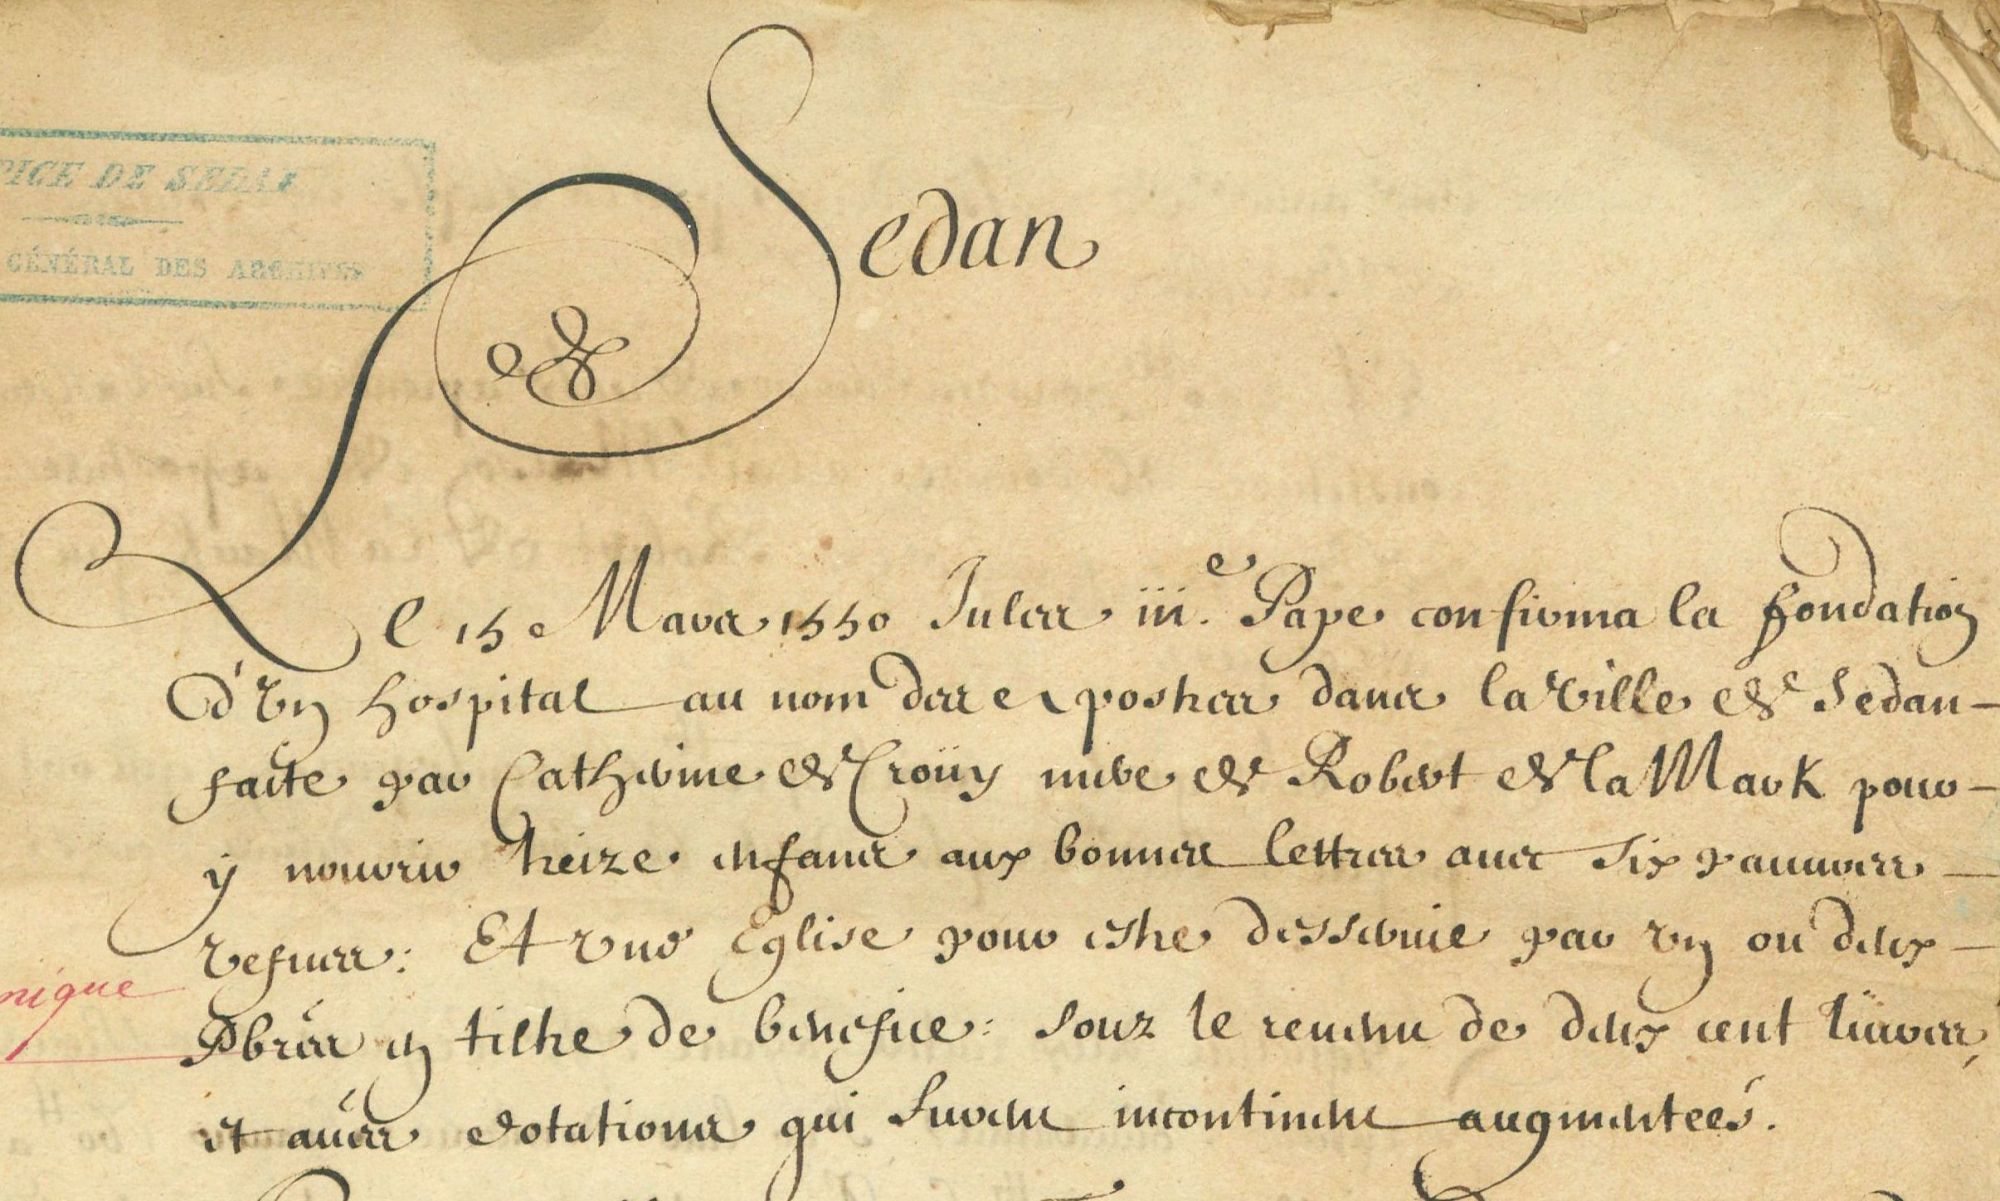 PICE DE SEDAN
GÉNÉRAL DES ARCHIVES
Sedan
Le 15 Mars 1550 Jules iii.e Pape confirma la fondation
d'vn hospital au nom des expostez dans la ville de Sedan
faite par Catherine de Croüy mere de Robert de la Mark pour
y nourir treize enfans aux bonnes lettres auec six pauures
vefues: Et vne Eglise pour estre desseruie par vn ou deux
nique
Pbrẽs en tiltre de benefice: souz le reuenu de deux cent liures,
et aũes dotations qui furent incontinent augmentées.